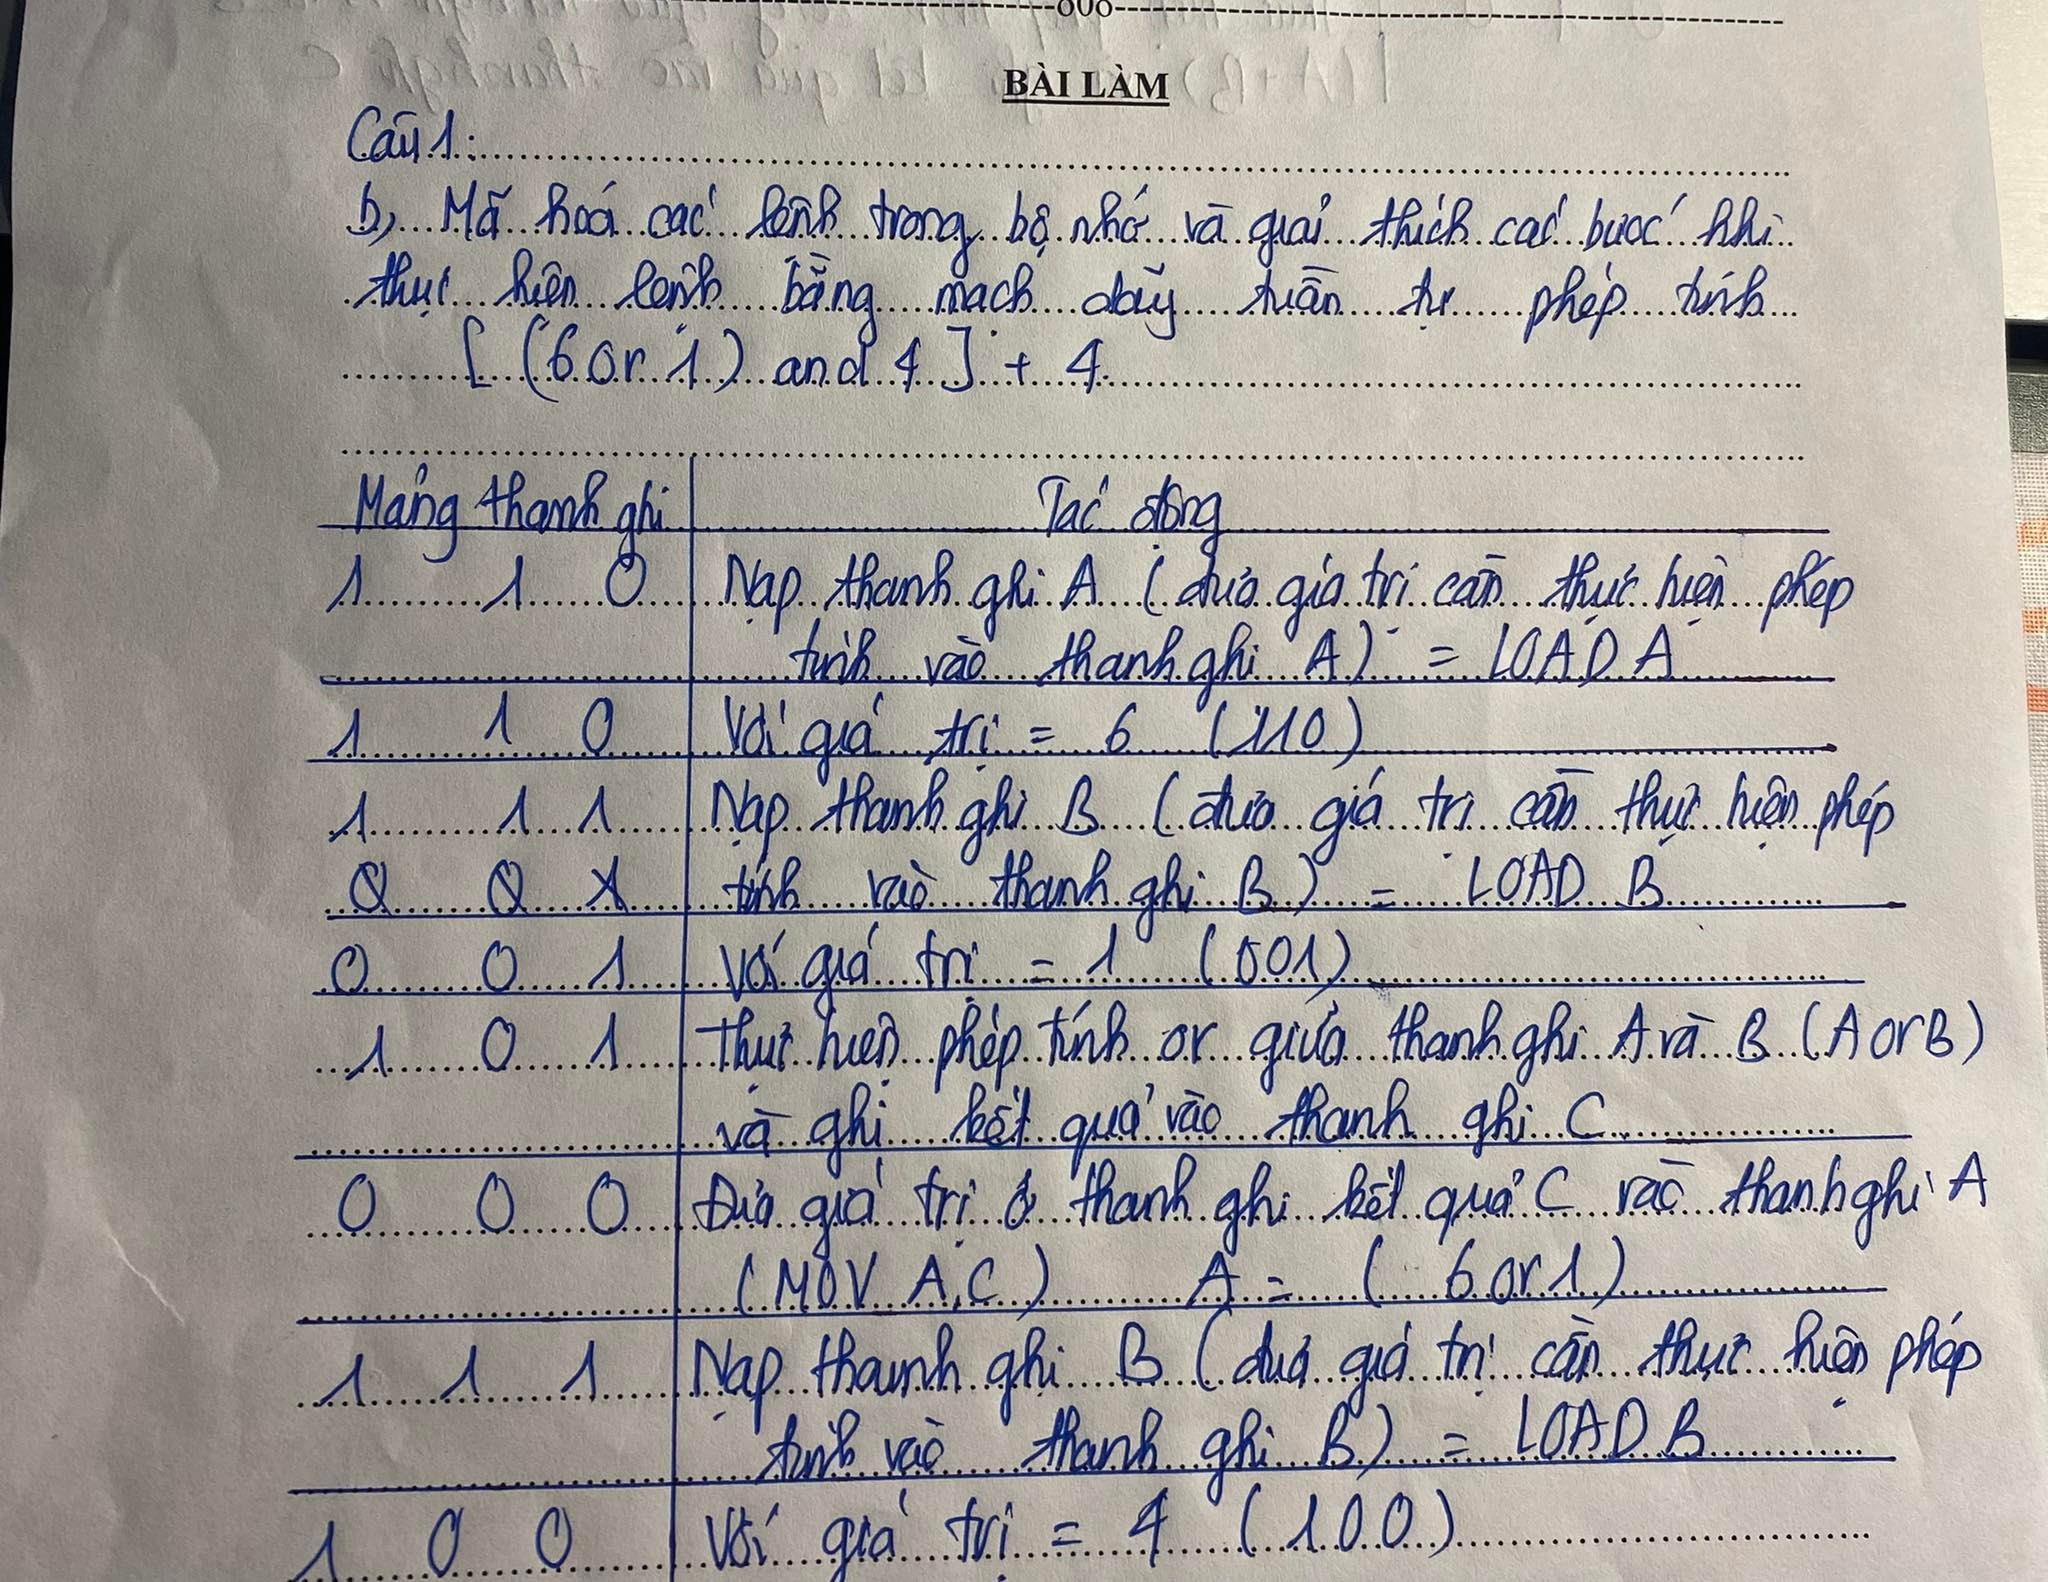 -----000-----
BÀI LÀM
Câu 1:
b, Mã hoá các lệnh trong bộ nhớ và giải thích các bước khi
thực hiện lệnh bằng mạch dãy tuần tự phép tính
[ (6 or 1) and 4 ] + 4.
Mảng thanh ghi Tác động
1 1 0 Nạp thanh ghi A (đưa giá trị cần thực hiện phép
tính vào thanh ghi A) = LOAD A
1 1 0 Với giá trị = 6 (110)
1 1 1 Nạp thanh ghi B (đưa giá trị cần thực hiện phép
tính vào thanh ghi B) = LOAD B
0 0 1 Với giá trị = 1 (001)
1 0 1 Thực hiện phép tính or giữa thanh ghi A và B (A or B)
và ghi kết quả vào thanh ghi C
0 0 0 Đưa giá trị ở thanh ghi kết quả C vào thanh ghi A
(MOV A,C) A = ( 6 or 1)
1 1 1 Nạp thanh ghi B (đưa giá trị cần thực hiện phép
tính vào thanh ghi B) = LOAD B
1 0 0 Với giá trị = 4 (100)